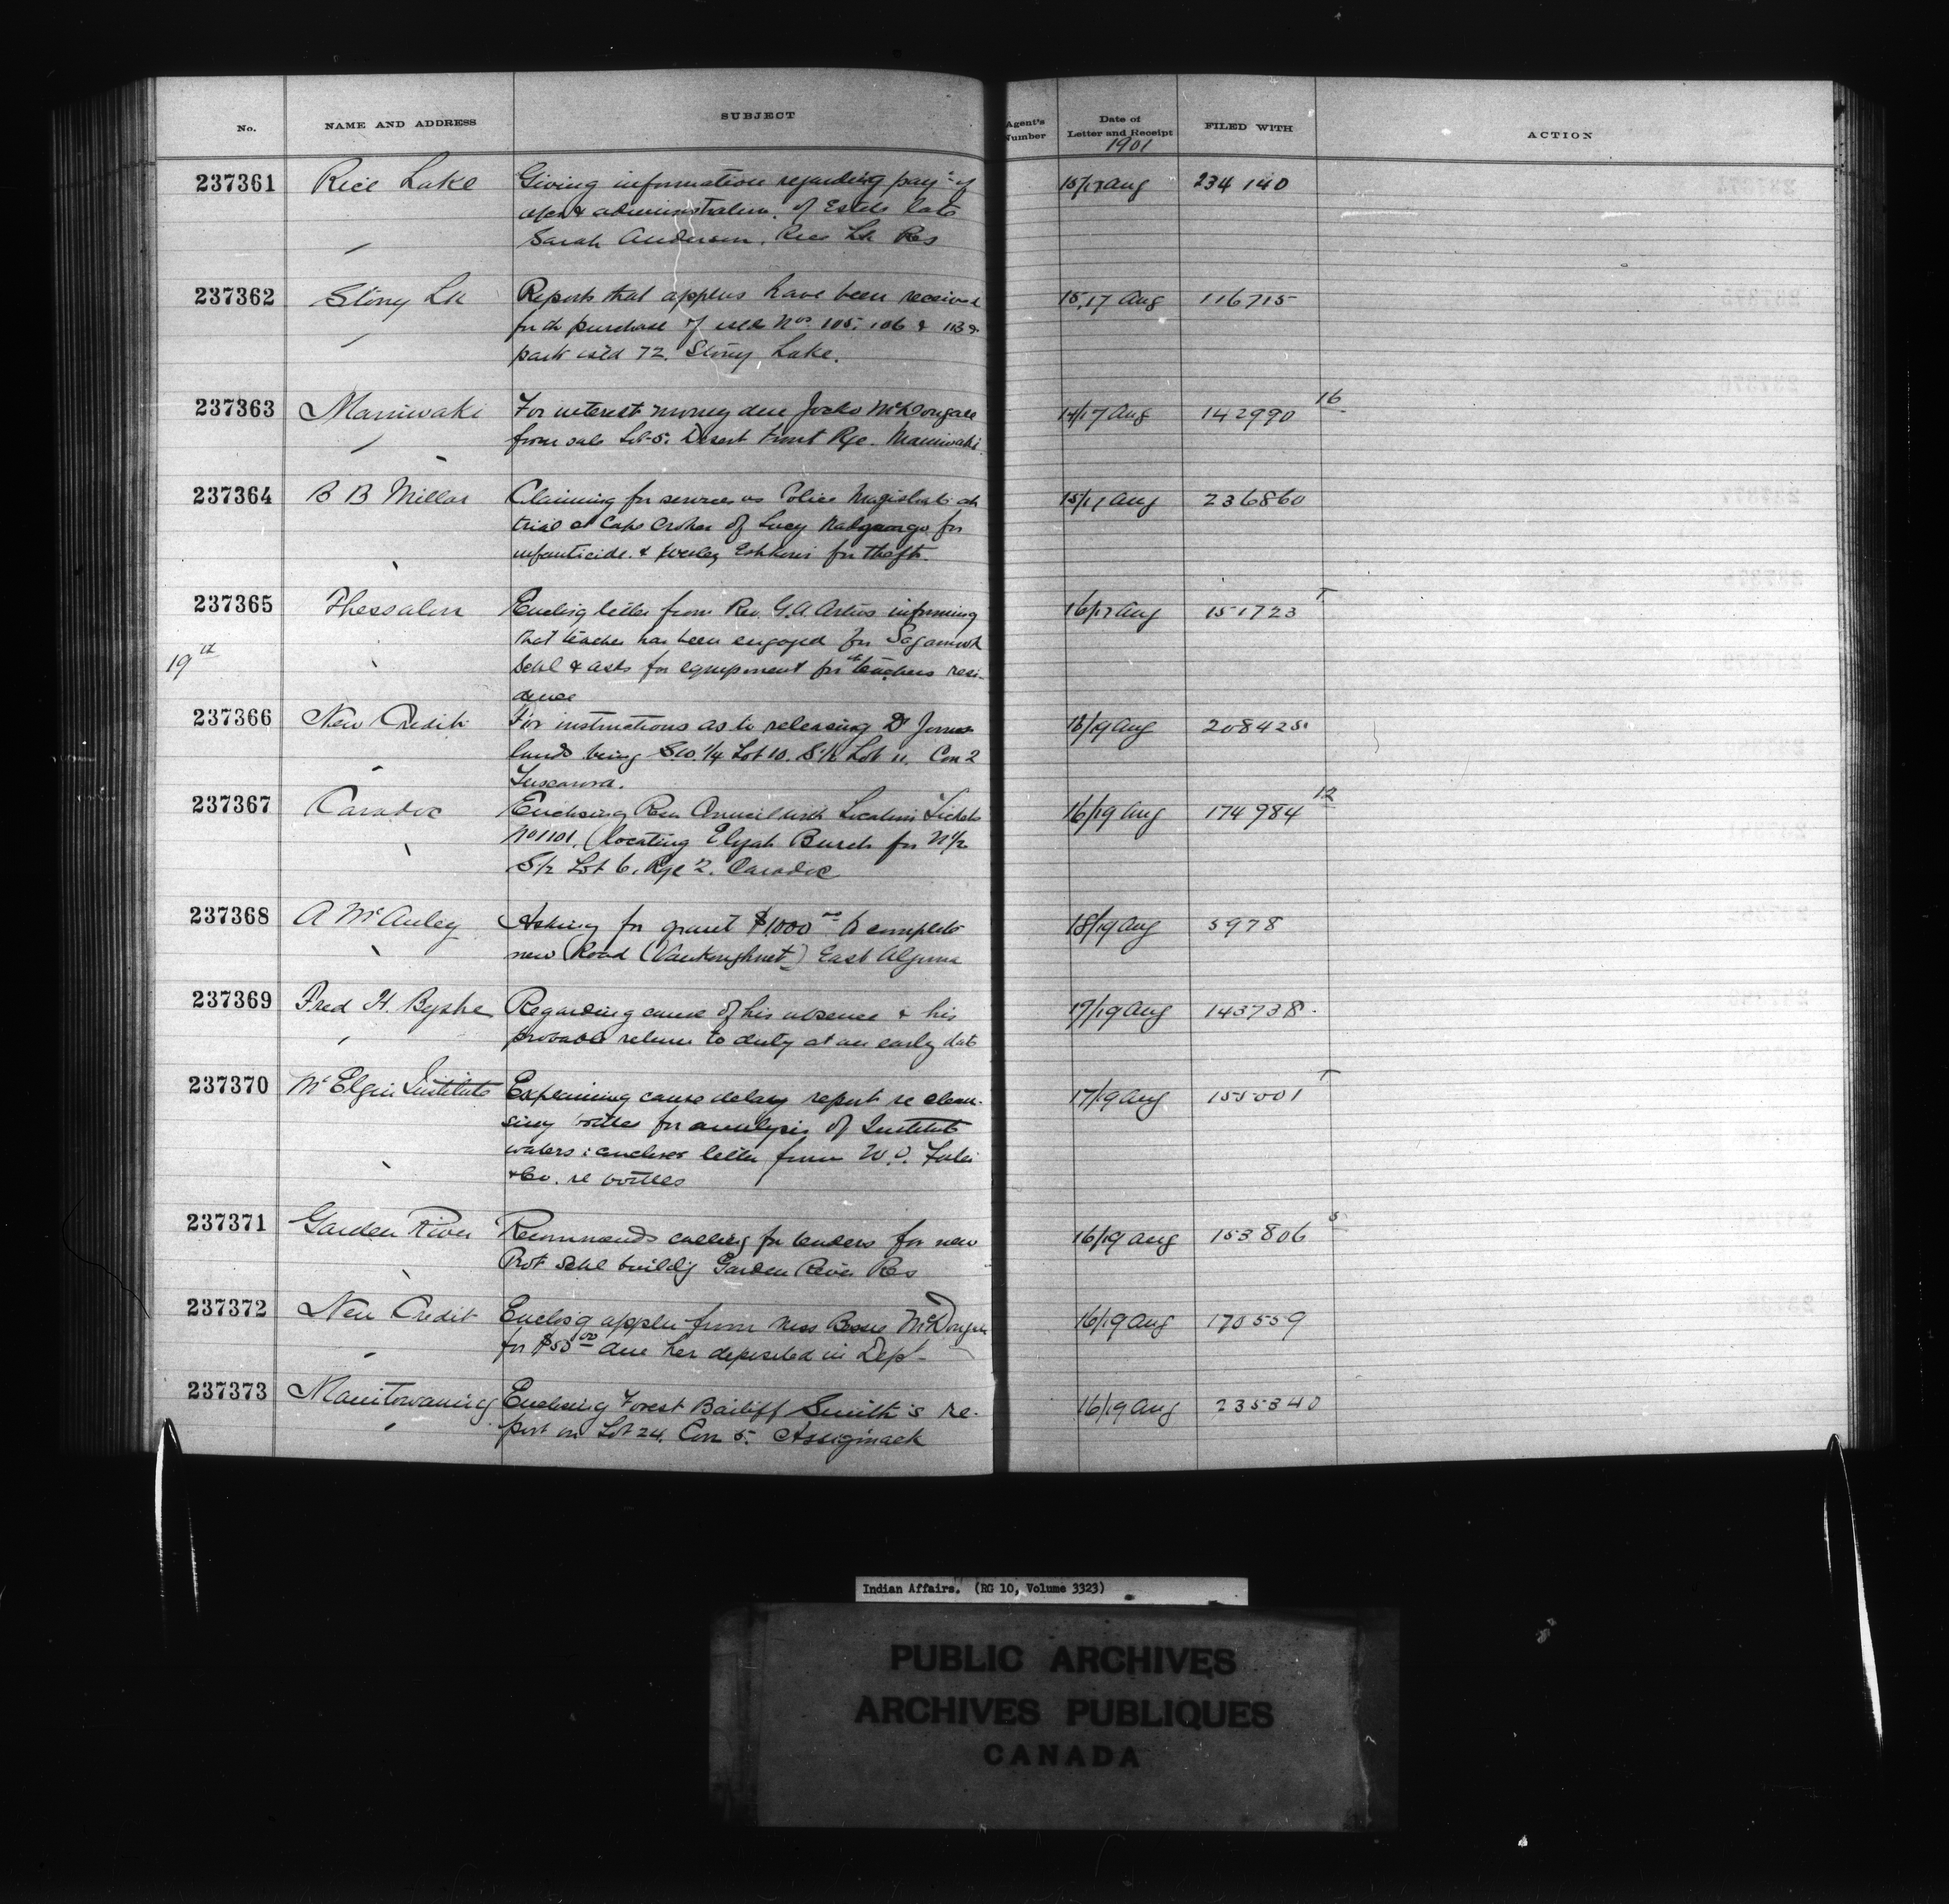 No. NAME AND ADDRESS SUBJECT Agent's Number Date of Letter and Receipt FILED WITH ACTION
1901
237361 Rice Lake Giving information regarding payt of 15/17 Aug 234140
& administration of Estate late
Sarah Anderson, Rice Lk Res
237362 Stony Lk Reports that applns have been received 15/17 Aug 116715
for th purchase of isld Nos 105, 106 & 113 &
part isld 72. Stony Lake.
237363 Maniwaki For interest money due Jocko McDougall 14/17 Aug 142990 16
from sale Lot 5. Desert Front Rge. Maniwaki
237364 B B Millar Claiming for services as Police Magistrate at 15/17 Aug 236860
trial at Cape Croker of Lucy for
infanticide. & Wesley for theft.
237365 Thessalon Enclosg letter from Rev. G. A. informing 16/17 Aug 151723 T
that teacher has been engaged for Sagamook
19th Schl & asks for equipment for th teachers resi-
dence
237366 New Credit For instructions as to releasing Dr Jones 18/19 Aug 208425
lands being SW. 1/4 Lot 10. S 1/2 Lot 11. Con 2
Tuscarora.
237367 Caradoc Enclosing Resn Council with Location Ticket 16/19 Aug 174984 12
No 1101, (locating Elijah Burch for N 1/2
S 1/2 Lot 6, Rge 2. Caradoc
237368 A McAuley Asking for grant $1,000 00 to complete 18/19 Aug 5978
new Road (Vankoughnet) East Algoma
237369 Fred H. Byshe Regarding cause of his absence & his 17/19 Aug 143738
probable return to duty at an early date
237370 Mt Elgin Institute Explaining cause delay report re clean- 17/19 Aug 155001 T
sing bottles for analysis of Institute
waters: encloses letter from W. J.
& Co. re bottles
237371 Garden River Recommends calling for tenders for new 16/19 Aug 153806 5
Prot Schl buildg Garden River Res
237372 New Credit Enclosg appln from Mrs McDougall 16/19 Aug 170559
for $50 00 due her deposited in Dept
237373 Manitowaning Enclosing Forest Bailiff Smith's re- 16/19 Aug 235340
port on Lot 24, Con 5. Assiginack
Indian Affairs. (RG 10, Volume 3323)
PUBLIC ARCHIVES
ARCHIVES PUBLIQUES
CANADA